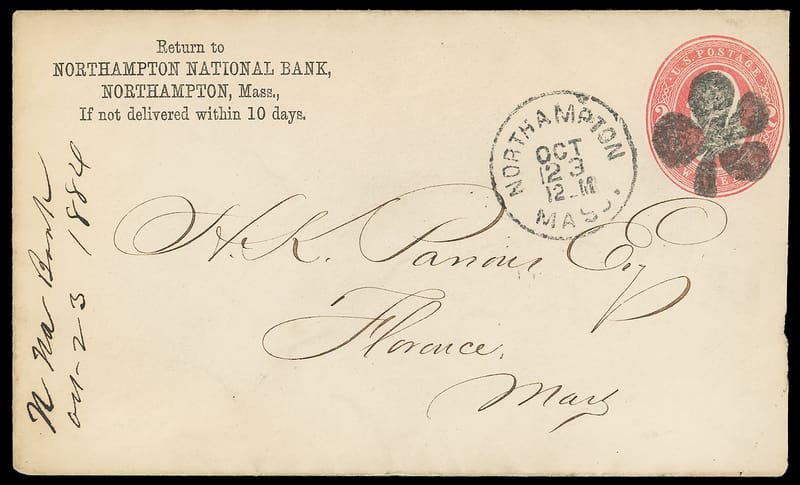 Return to
NORTHAMPTON NATIONAL BANK,
NORTHAMPTON, Mass.,
If not delivered within 10 days.
U.S. POSTAGE
2 2
NORTHAMPTON
OCT
23
12 M
MASS.
H. K. Parsons Esq
Florence,
Mass
N Na Bank
Oct-23 1884